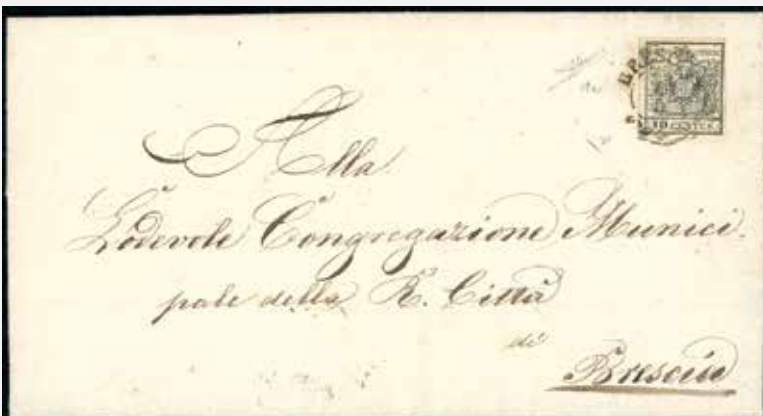 BRESC
10 CENTES.
Alla
Lodevole Congregazione Munici-
pale della R. Città
di
Brescia